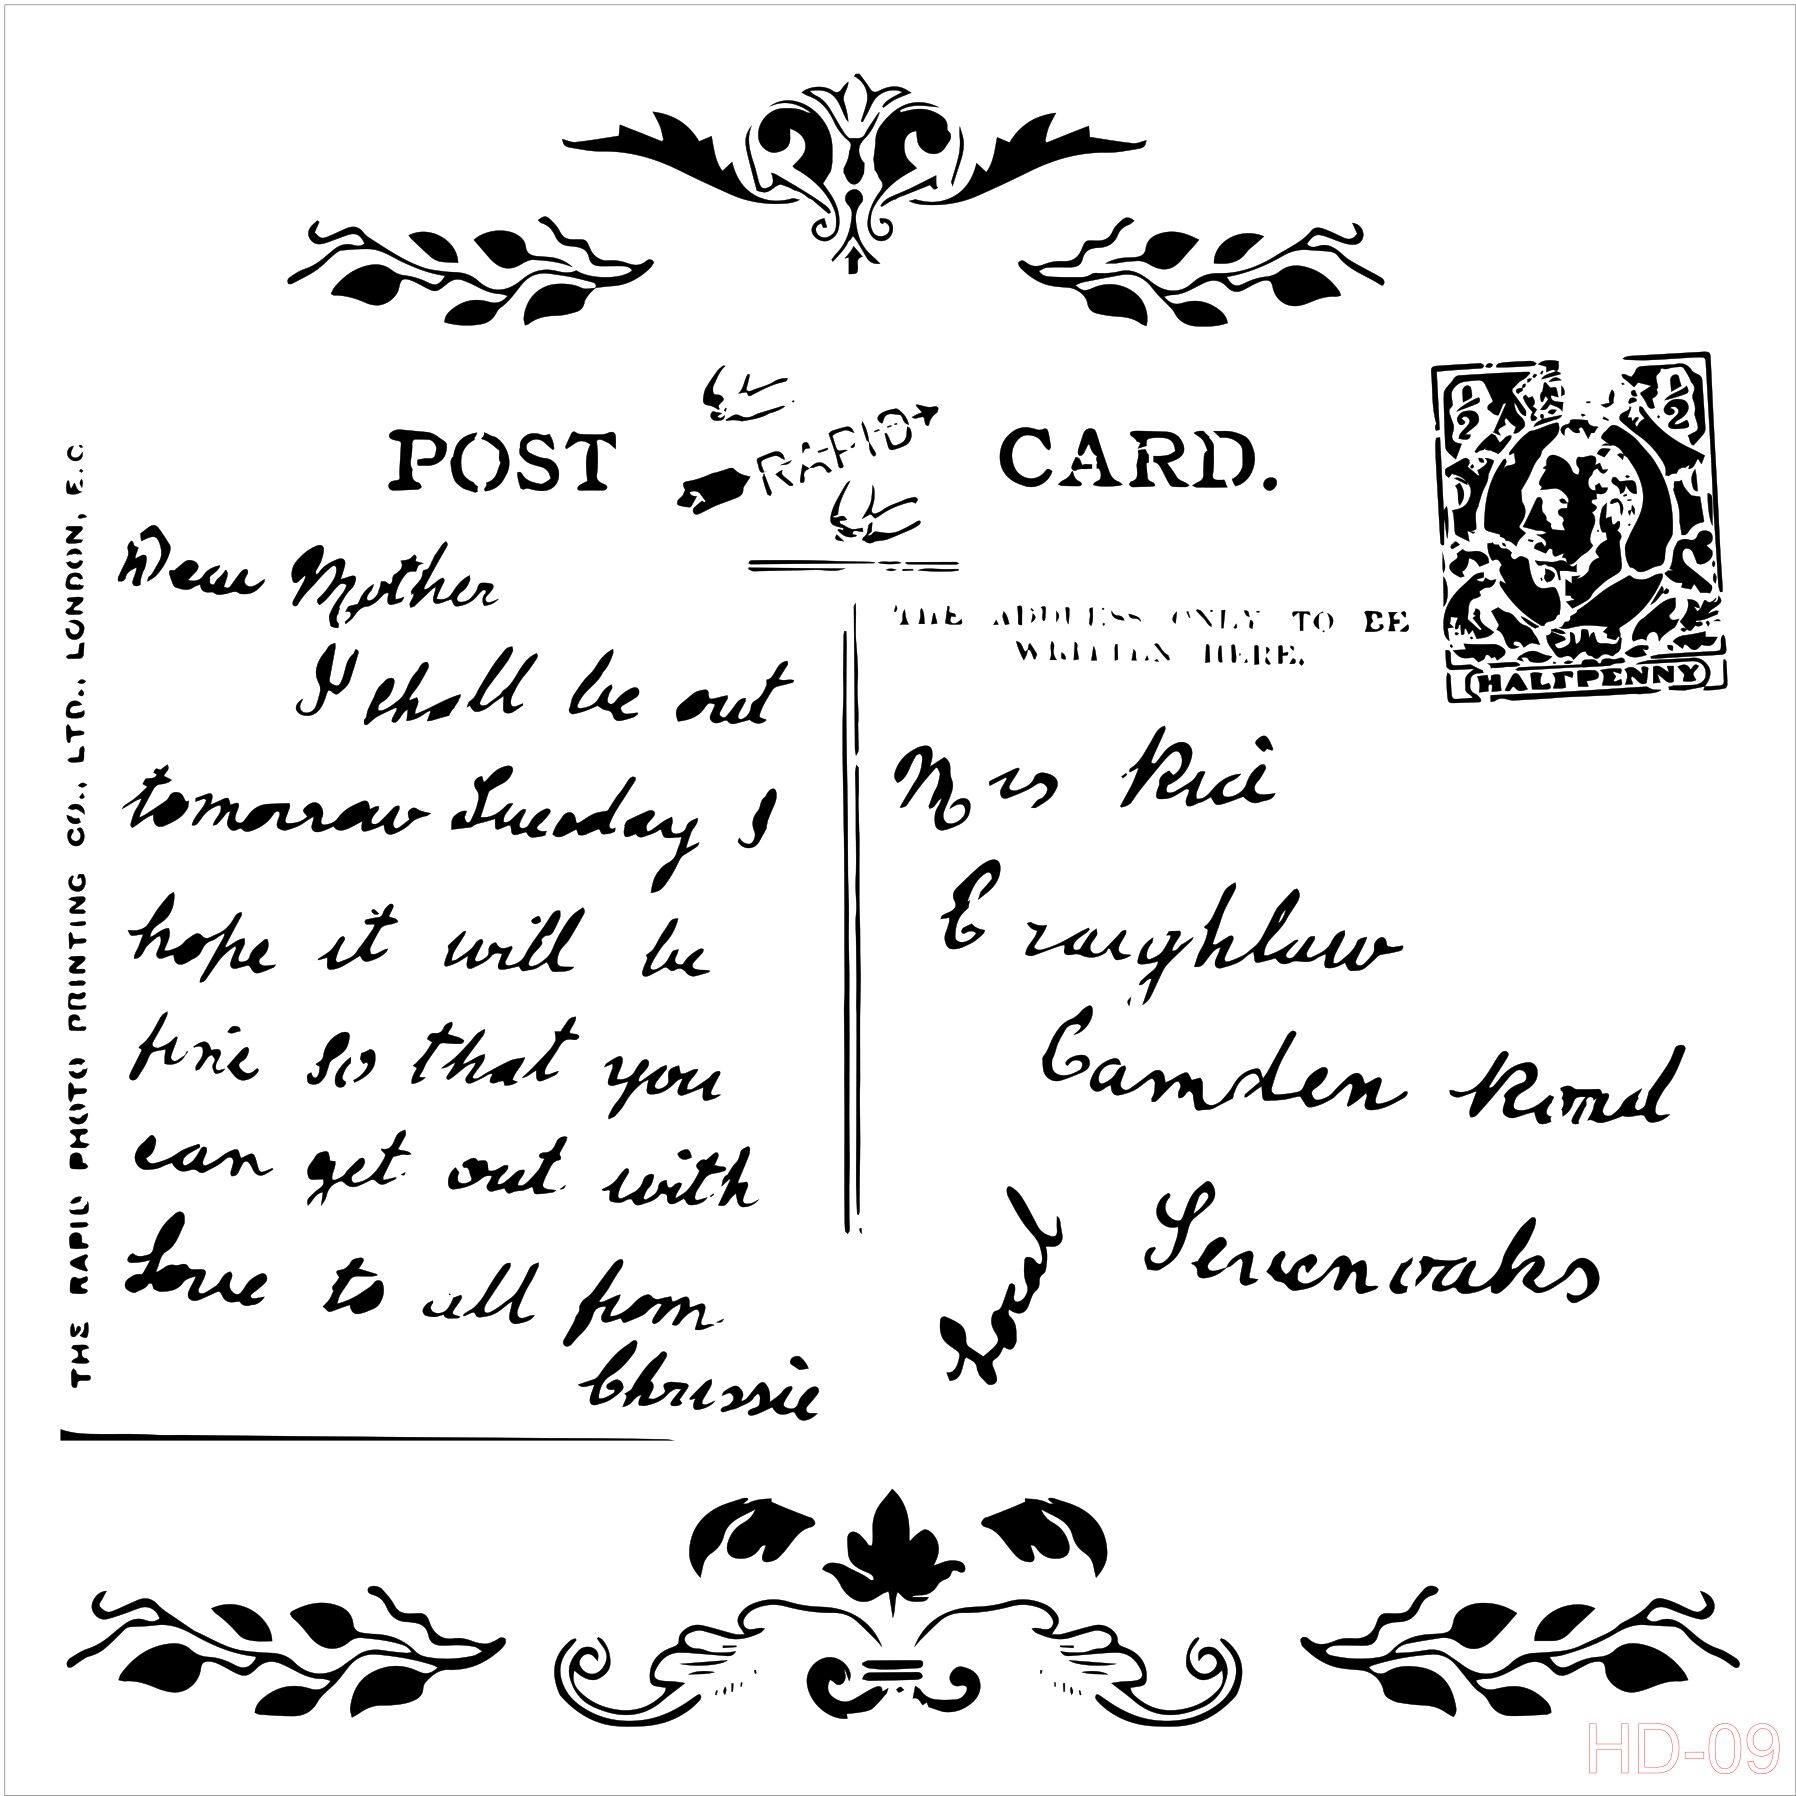 POST RAPID CARD.
THE RAPID PHOTO PRINTING CO., LTD., LONDON, E.C.
THE ADDRESS ONLY TO BE
WRITTEN HERE.
1/2 1/2
HALFPENNY
Dear Mother
I shall be out
tomorrow Tuesday I
hope it will be
fine so that you
can get out with
Love to all from
Chrissie
Mrs Rice
Camden Road
Sevenoaks
HD-09